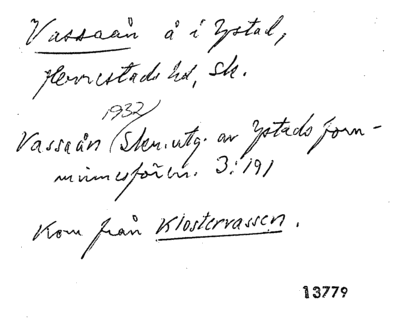 Vassaån å i Ystad,
Herrestads hd, Sk.
1932
Vassaån (Skr. utg. av Ystads forn-
minnesfören. 3:191
Kom från Klostervassen.
13779